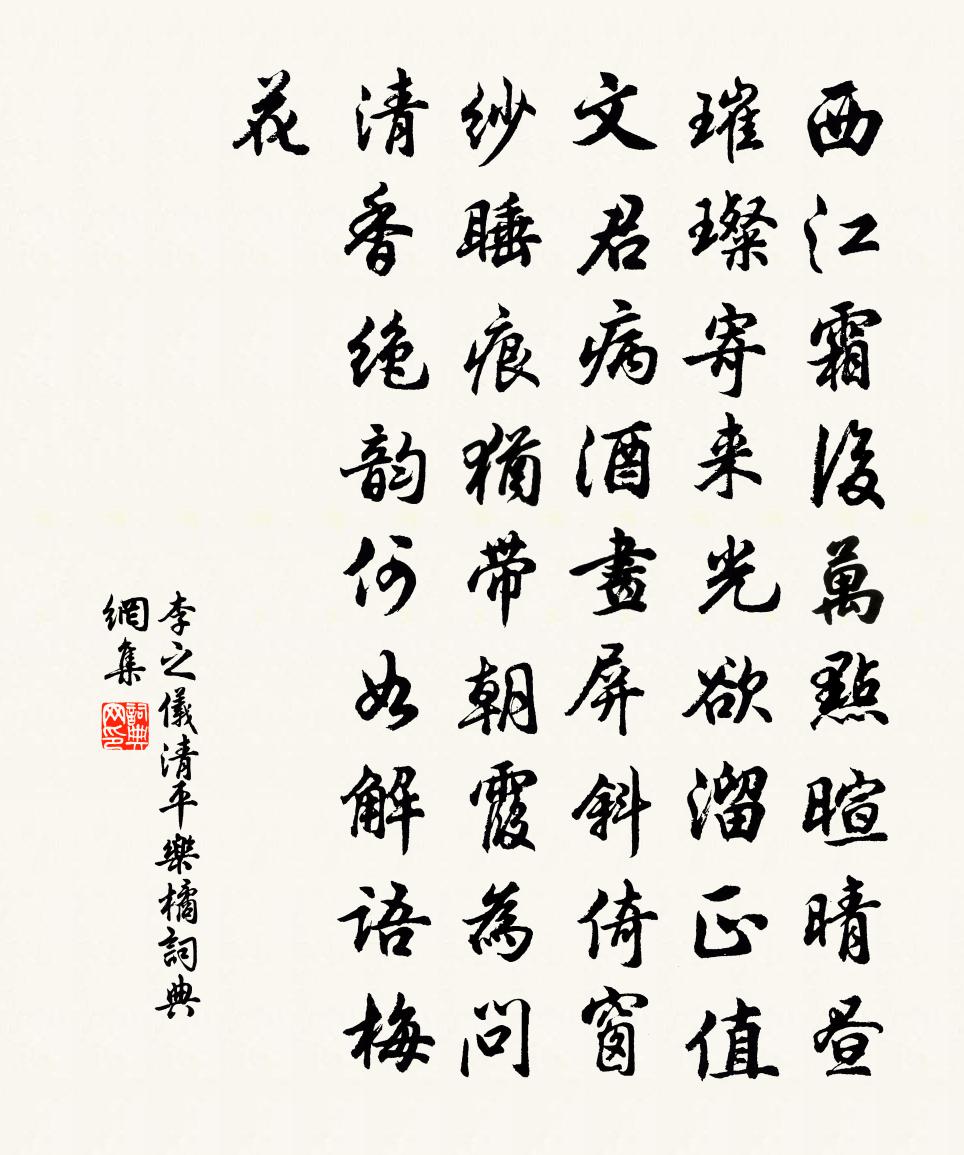 西江霜後萬點暄晴晝
璀璨寄来光欲溜正值
文君病酒畫屏斜倚窗
紗睡痕猶帶朝霞為問
清香绝韵何如解语梅
花
李之儀清平樂橘詞典
網集
詞典网印